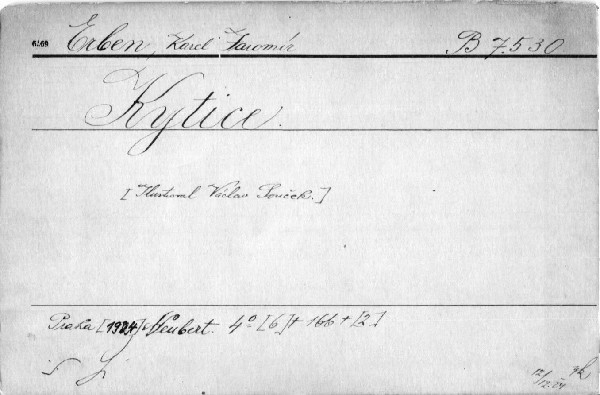 6469 Erben, Karel Jaromír B 7.530
Kytice.
[Ilustroval Václav Souček.]
Praha [1924] Neubert. 4° [6] + 166 + [2]